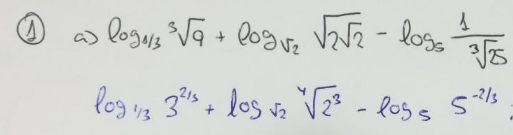 ① a) log₁/₃ ∛9 + log√2 √(2√2) - log₅ 1/∛25
log₁/₃ 3^(2/3) + log√2 ∜(2³) - log₅ 5^(-2/3)